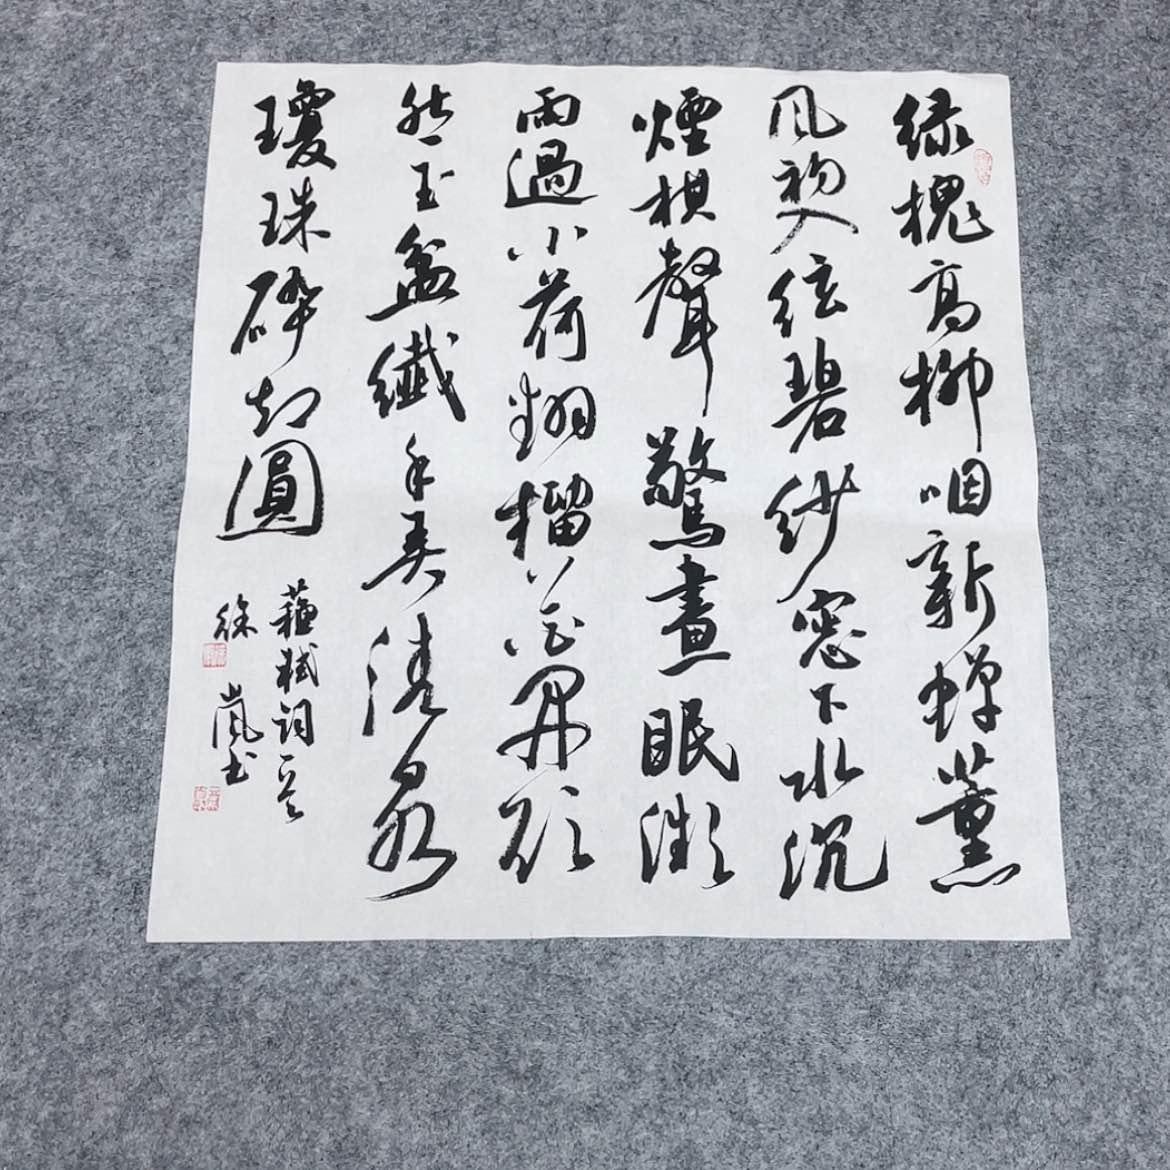 绿槐高柳咽新蝉薰
风初入弦碧纱窓下水沉
煙棋聲驚晝眠微
雨過小荷翻榴花开欲
然玉盆纖手弄清泉
瓊珠碎却圓
蘇軾詞一首
徐嵐书